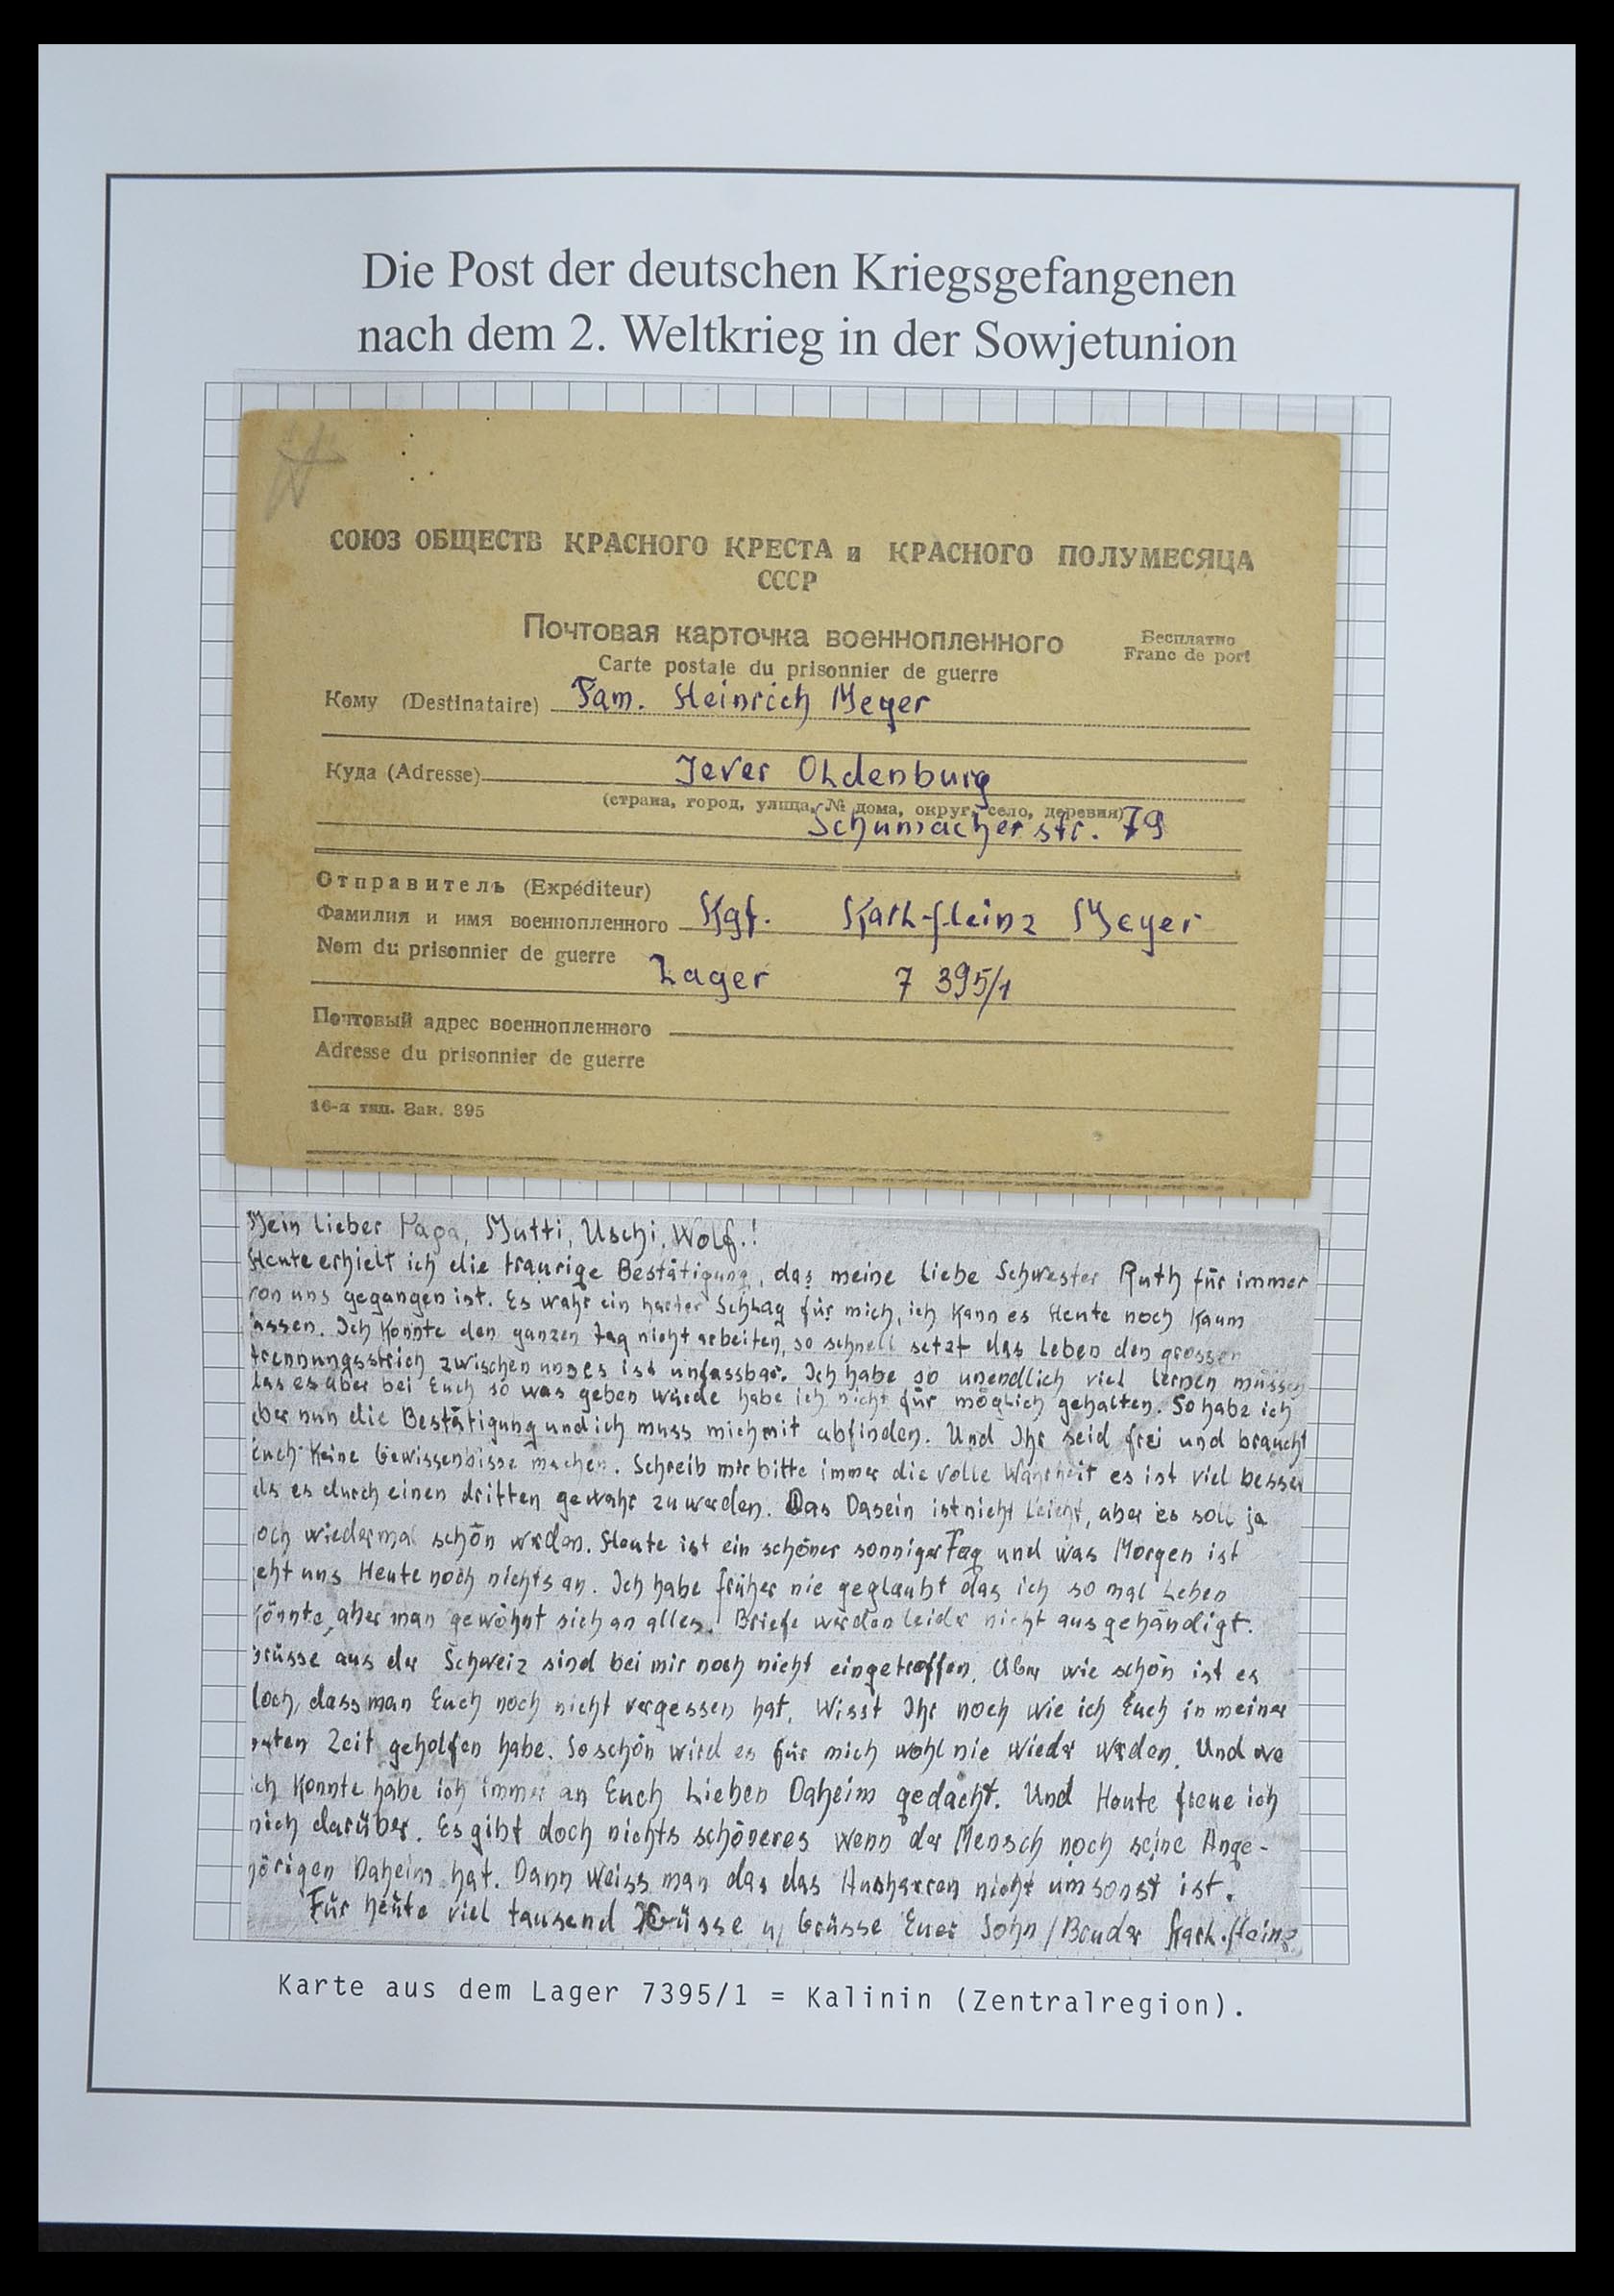 Die Post der deutschen Kriegsgefangenen
nach dem 2. Weltkrieg in der Sowjetunion
СОЮЗ ОБЩЕСТВ КРАСНОГО КРЕСТА и КРАСНОГО ПОЛУМЕСЯЦА
СССР
Почтовая карточка военнопленного
Бесплатно
Carte postale du prisonnier de guerre
Franc de port
Кому (Destinataire) Fam. Heinrich Meyer
Куда (Adresse) Jever Oldenburg
(страна, город, улица, № дома, округ, село, деревня)
Schumacherstr. 79
Отправитель (Expéditeur)
Фамилия и имя военнопленного Kgf. Karl-Heinz Meyer
Nom du prisonnier de guerre
Lager 7 395/1
Почтовый адрес военнопленного
Adresse du prisonnier de guerre
16-я тип. Зак. 395
Mein lieber Papa, Mutti, Uschi, Wolf.!
Heute erhielt ich die traurige Bestätigung, das meine liebe Schwester Ruth für immer
von uns gegangen ist. Es wahr ein harter Schlag für mich, ich kann es Heute noch kaum
fassen. Ich konnte den ganzen Tag nicht arbeiten, so schnell setzt das Leben den grossen
trennungsstrich zwischen unses ist unfassbar. Ich habe so unendlich viel lernen müssen
das es aber bei Euch so was geben würde habe ich nicht für möglich gehalten. So habe ich
aber nun die Bestätigung und ich muss mich mit abfinden. Und Ihr seid frei und braucht
Euch keine Gewissenbisse machen. Schreib mir bitte immer die volle Wahrheit es ist viel besser
als es durch einen dritten gewahr zu werden. Das Dasein ist nicht leicht, aber es soll ja
doch wiedermal schön werden. Heute ist ein schöner sonniger Tag und was Morgen ist
geht uns Heute noch nichts an. Ich habe früher nie geglaubt das ich so mal Leben
könnte, aber man gewöhnt sich an alles. Briefe werden leider nicht ausgehändigt.
Grüsse aus der Schweiz sind bei mir noch nicht eingetroffen. Aber wie schön ist es
doch, dass man Euch noch nicht vergessen hat. Wisst Ihr noch wie ich Euch in meiner
guten Zeit geholfen habe. So schön wird es für mich wohl nie wieder werden. Und wo
ich konnte habe ich immer an Euch Lieben Daheim gedacht. Und Heute freue ich
mich darüber. Es gibt doch nichts schöneres wenn der Mensch noch seine Ange-
hörigen Daheim hat. Dann weiss man das das Ausharren nicht umsonst ist.
Für heute viel tausend Küsse u. Grüsse Euer Sohn/Bruder Karl-Heinz
Karte aus dem Lager 7395/1 = Kalinin (Zentralregion).